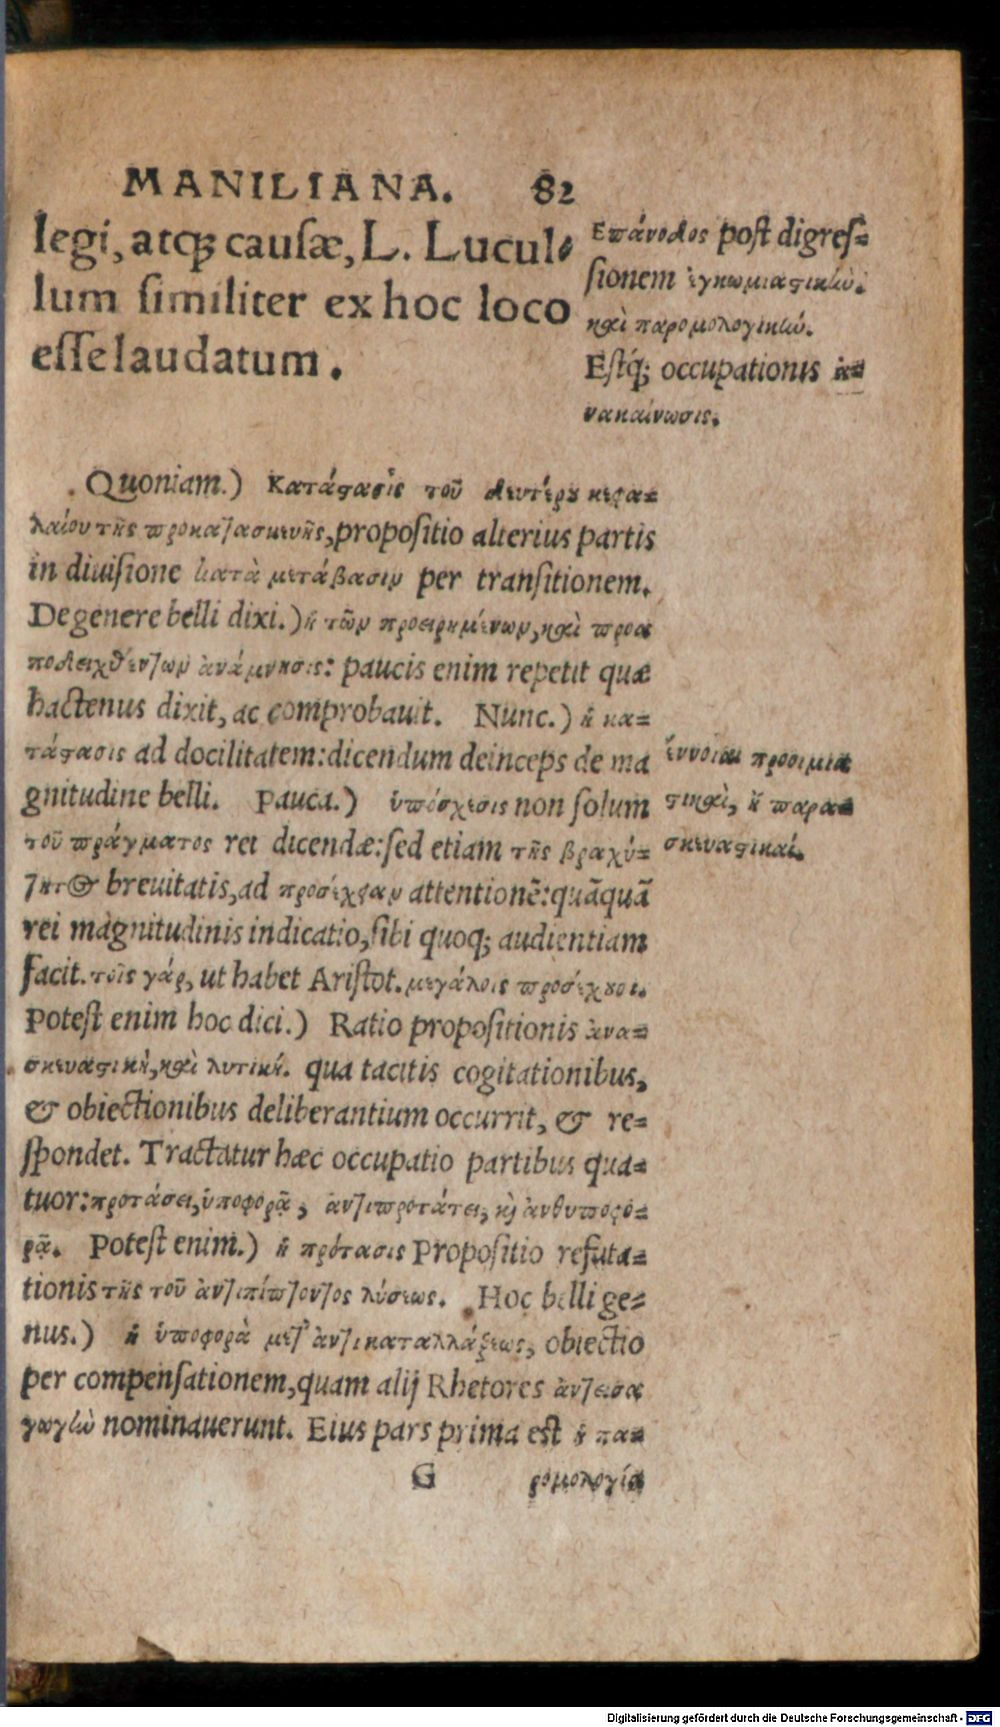 MANILIANA. 82
legi, atq; causæ, L. Lucul-
lum similiter ex hoc loco
esse laudatum.
Επάνοδος post digres-
sionem ἐγκωμιαστικὴν.
καὶ παρομολογικὴν.
Estq́; occupationis ἀ-
νακαίνωσις.
Quoniam.) Κατάστασις τοῦ δευτέρου κεφα-
λαίου τῆς προκατασκευῆς, propositio alterius partis
in diuisione κατὰ μετάβασιν per transitionem.
De genere belli dixi.) ἡ τῶν προειρημένων, καὶ προα
ποδειχθέντων ἀνάμνησις: paucis enim repetit quæ
hactenus dixit, ac comprobauit. Nunc.) ἡ κα-
τάστασις ad docilitatem: dicendum deinceps de ma
gnitudine belli. Pauca.) ὑπόσχεσις non solum
ἔννοιαι προοιμια
στικαὶ, ἢ παρα-
σκευαστικαί.
τοῦ πράγματος rei dicendæ: sed etiam τῆς βραχύ-
τητος breuitatis, ad προσέχειαν attentionē: quāquā
rei magnitudinis indicatio, sibi quoq; audientiam
facit. τοῖς γάρ, ut habet Aristot. μεγάλοις προσέχουσι.
Potest enim hoc dici.) Ratio propositionis ἀνα-
σκευαστικὴ, καὶ λυτική. qua tacitis cogitationibus,
& obiectionibus deliberantium occurrit, & re-
spondet. Tractatur hæc occupatio partibus qua-
tuor: προτάσει, ὑποφορᾷ, ἀντιπροτάσει, καὶ ἀνθυποφο-
ρᾷ. Potest enim.) ἡ πρότασις Propositio refuta-
tionis τῆς τοῦ ἀντιπίπτοντος λύσεως. Hoc belli ge-
nus.) ἡ ὑποφορὰ μετ' ἀντικαταλλάξεως, obiectio
per compensationem, quam alij Rhetores ἀντεισα
γωγὴν nominauerunt. Eius pars prima est ἡ πα-
G ρομολογία
Digitalisierung gefördert durch die Deutsche Forschungsgemeinschaft - DFG